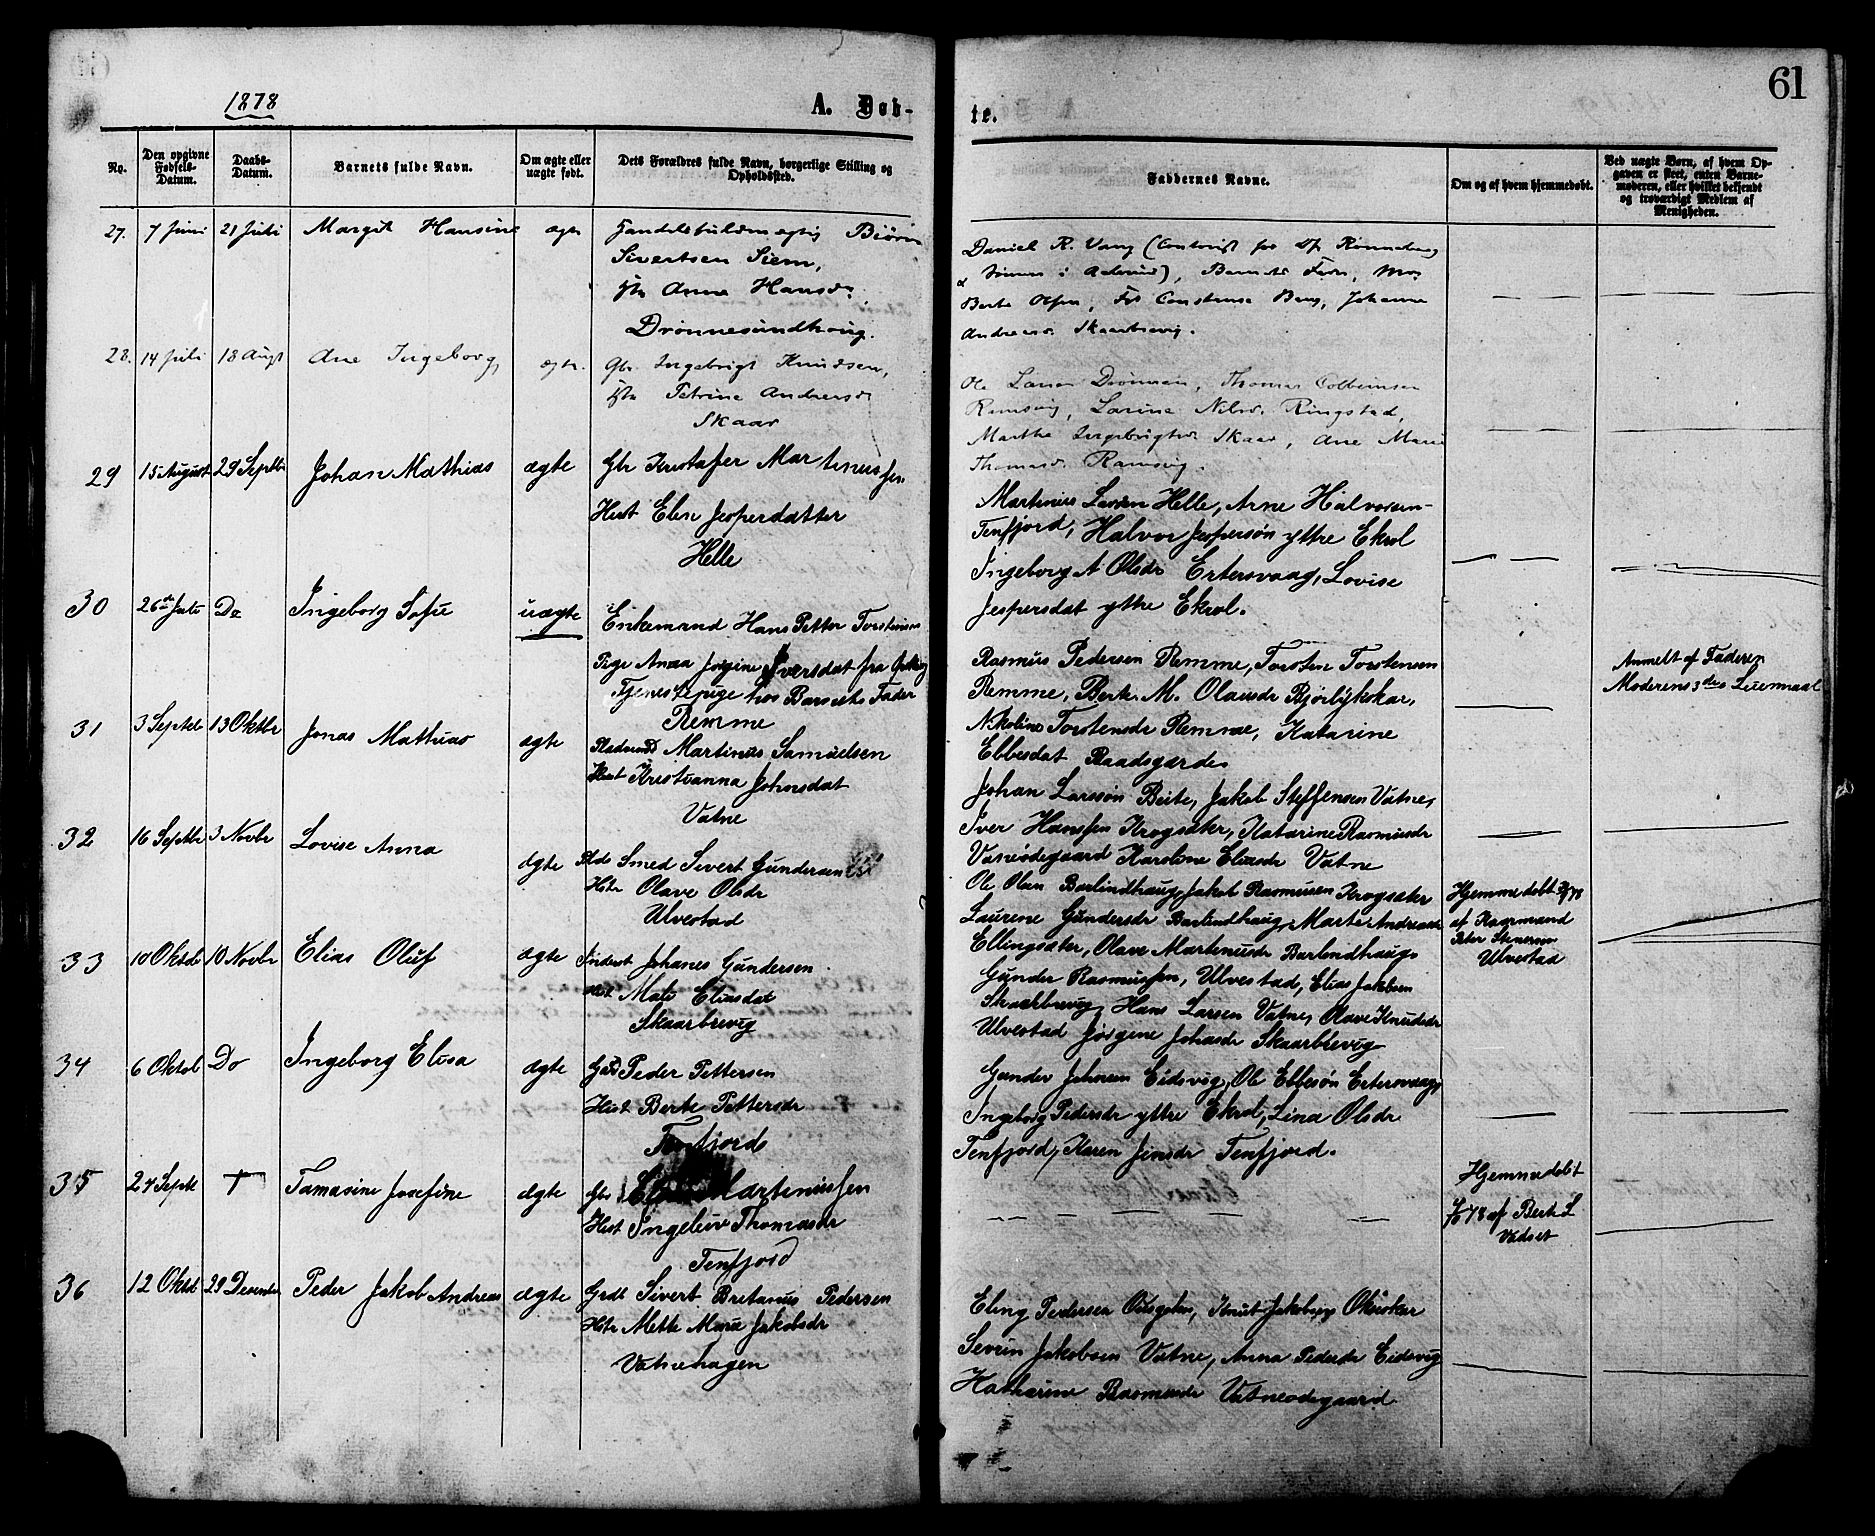 61
1878
A. Døb-
te.
No.
Den opgivne Fødsels-Datum.
Daabs-Datum.
Barnets fulde Navn.
Om ægte eller uægte født.
Dets Forældres fulde Navn, borgerlige Stilling og Opholdssted.
Faddernes Navne.
Om og af hvem hjemmedøbt.
Ved uægte Børn, af hvem Op-
gaven er skeet, enten Barne-
moderen, eller hvilket bekjendt
og troværdigt Medlem af
Menigheden.
27. 7 Juni 21 Juli Margit Hansine ægte
Handelsfuldmægtig Biørn
Sivertsen Siem,
Anne Hansd.
Drønnesundhoug.
Daniel R. Vang
Barnets Fader,
Berte Olsen, Constanse Berg, Johanne
Andreasd. Skaarbrevig.
28. 14 Juli 18 Augt Ane Ingeborg ægte.
Gbr. Ingebrigt Knudsen,
Petrine Andreasd.
Skaar
Ole Larsen Thomas
Ramsvig, Larine Nilsd. Ringstad,
Martha Ingebrigtsd. Skaar, Ane Marie
Thomasd. Ramsvig.
29 15 August 29 Septbr Johan Mathias ægte
Gbr Kristofer Martinussen
Hust Elen Jespersdatter
Helle
Martinus Larsen Helle, Arne Halvorsen
Tenfjord, Halvor Jespersøn ytre Ekrol
Ingeborg A Olsdr Ertersvaag, Lovise
Jespersdat ytre Ekrol.
30 26de Juli Do Ingeborg Sofie uægte
Enkemand Hans Petter Torstensen
Pige Anna Jorgine Iversdat fra
Tjenestepige hos Barnets Fader
Remme
Rasmus Pedersen Remme, Torsten Torstensen
Remme, Berte M. Olausdr Bjørlykskar,
Nikoline Torstensdr Remme, Katarine
Ebbesdat Raadsgarde
Anmelt af Faderen
Moderens 3die Leiermaal
31 3 Septbr 13 Oktbr Jonas Mathias ægte
Martinus Samuelsen
Hust Kristianna Johnsdat
Vatne
Johan Larssøn Beite, Jakob Steffensen Vatne,
Iver Hanssen Krogsæter, Katarine Rasmusdr
Vatneødegaard Karoline Eliasdr Vatne
32 16 Septbr 3 Novbr Lovise Anna ægte
Smed Sivert Gundersen
Hstr Olave Olsdr
Ulvestad
Ole Olsen Barlindhaug, Jakob Rasmussen Krogsæter
Laurene Gundersdr Barlindhaug, Marte Andreasdr
Ellingsæter, Olave Martinusdr Barlindhaug
Hjemmedøbt
af Kaarmand
Peter Steneresen
Ulvestad
33 10 Oktb 10 Novbr Elias Oluf ægte
Inderst Johanes Gundersen
Hust Mate Eliasdat
Skaarbrevig
Gunder Rasmussen, Ulvestad, Elias Jakobsen
Skaarbrevig, Hans Larsen Vatne, Olave Knudsdr
Ulvestad Jørgene Johansdr Skaarbrevig
34 6 Oktob Do Ingeborg Elisa ægte
Peder Pettersen
Hust Berte Pettersdr
Tenfjord
Gunder Johnsen Eidsvig, Ole Ebbesøn Ertersvaag,
Ingeborg Pedersdr ytre Ekrol, Lina Olsdr
Tenfjord, Karen Jensdr Tenfjord.
35 27 Septb † Tamasine Josefine ægte
Gbr Martinussen
Hust Ingeleiv Thomasdr
Tenfjord
Hjemmedøbt
78 af Berte L
Vadset
36 12 Oktb 29 Desember Peder Jakob Andreas ægte
Grdl Sivert Bretanus Pedersen
Hstr Mette Marie Jakobsdr
Vatnehagen
Eling Pedersen Knut Jakobsen
Severin Jakobsen Vatne, Anna Pedersdr Eidsvig
Katharine Rasmusdr Vatneødegaard